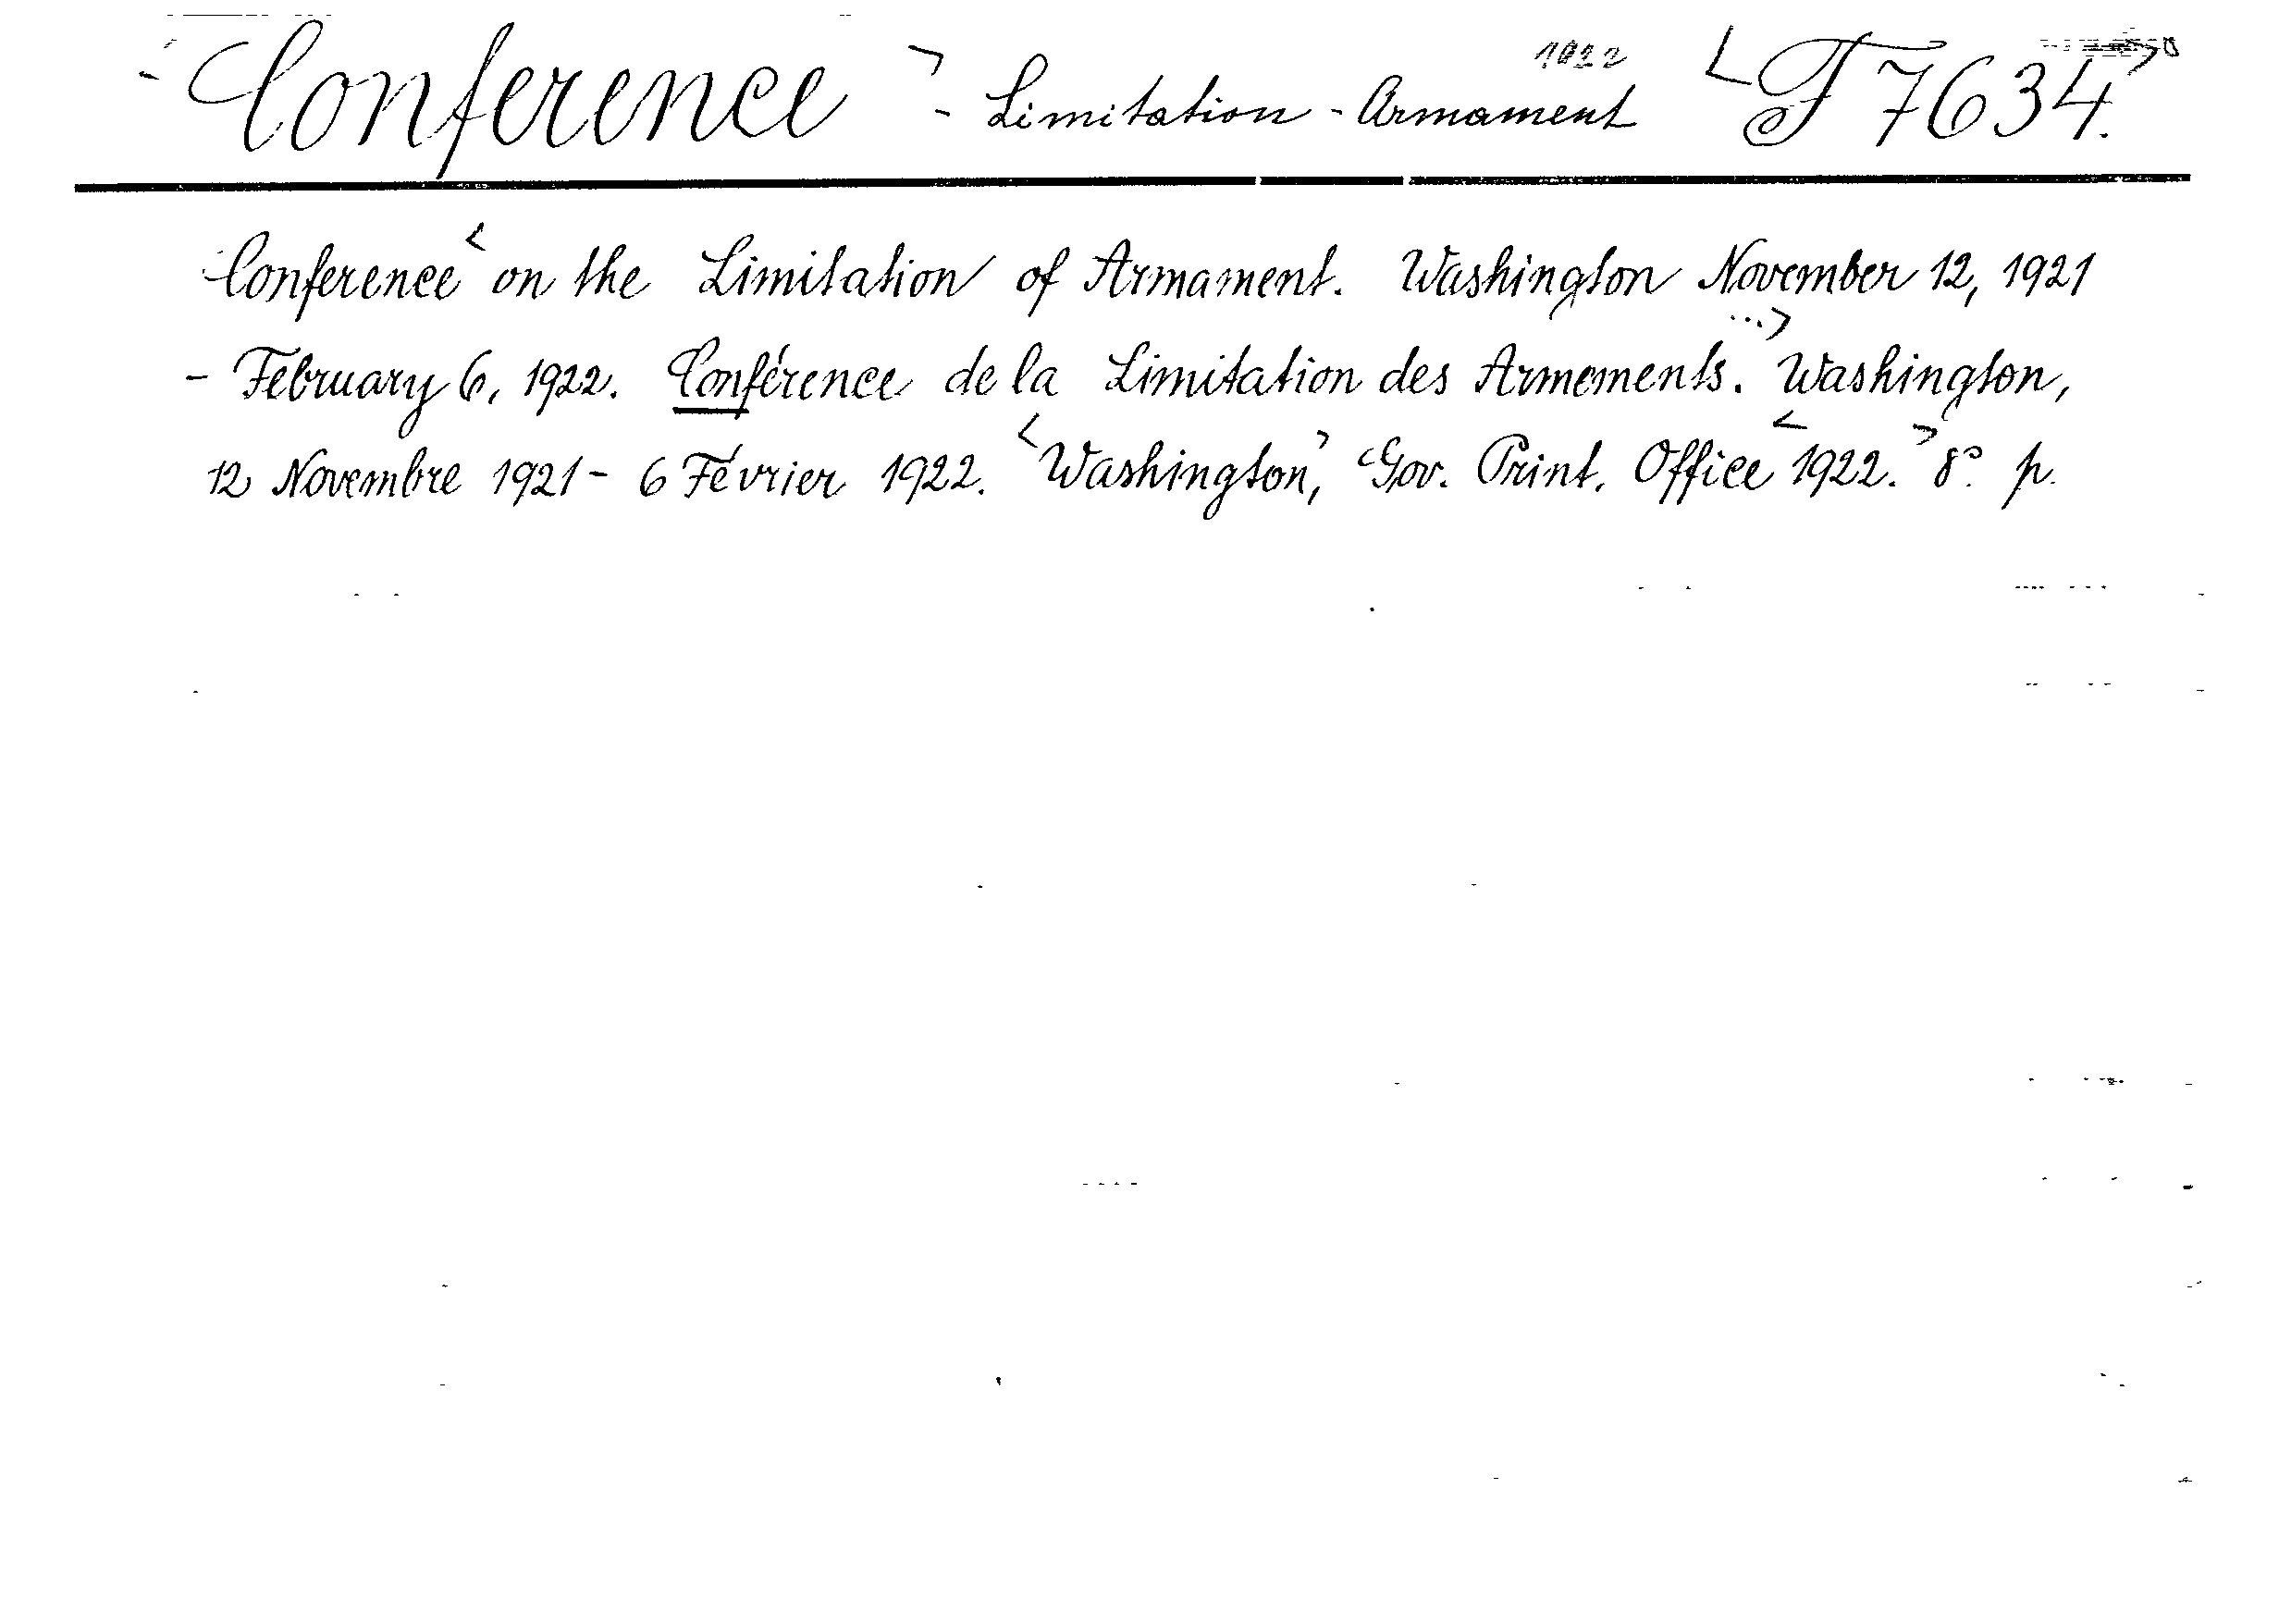 Conference - Limitation - Armament 1922 T 7634.
Conference on the Limitation of Armament. Washington November 12, 1921
- February 6, 1922. Conférence de la Limitation des Armements. ... Washington,
12 Novembre 1921 - 6 Février 1922. Washington, Gov. Print. Office 1922. 8° p.